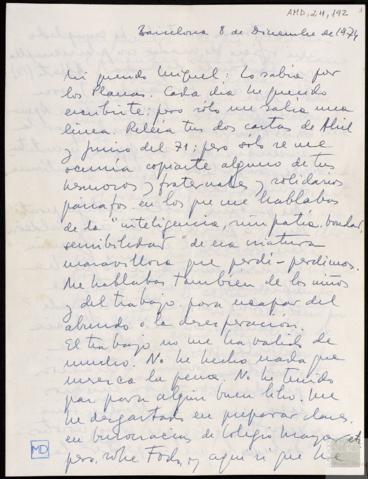 AMD, 24, 192
Barcelona 8 de Diciembre de 1974
Mi querido Miguel: Lo sabía por
los Planas. Cada día he querido
escribirte; pero sólo me salía una
línea. Releía tus dos cartas de Abril
y Junio del 71; pero solo se me
ocurría copiarte alguno de tus
hermosos y fraternales y solidarios
párrafos en los que me hablabas
de la "inteligencia, simpatía, bondad,
sensibilidad" de esa criatura
maravillosa que perdí - perdimos.
Me hablabas también de los niños
y del trabajo para escapar del
absurdo o la desesperación.
El trabajo no me ha valido de
mucho. No he hecho nada que
merezca la pena. No he tenido
paz para algún buen libro. Me
he desgastado en preparar clases,
en burocracias de Colegio Mayor etc
pero, sobre Todo, y aquí sí que he
MD